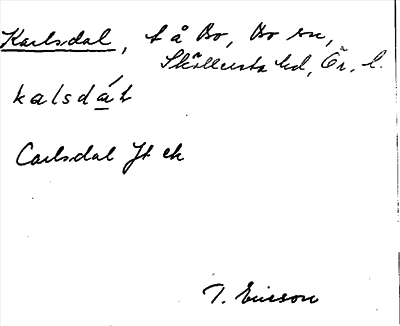 Karlsdal, t å Bo, Bo sn,
Sköllersta hd, Ör. l.
kalsdál
Carlsdal Jt ek
T. Ericsson